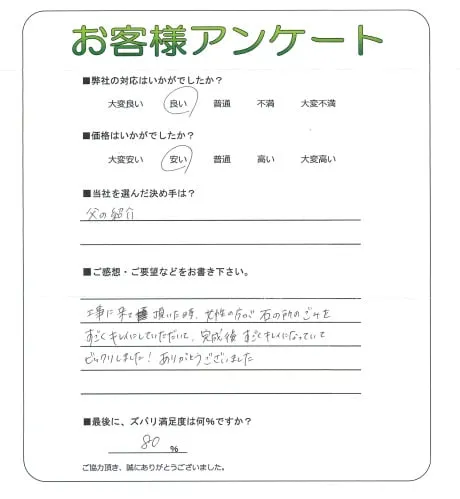 お客様アンケート
■弊社の対応はいかがでしたか?
大変良い 良い 普通 不満 大変不満
■価格はいかがでしたか?
大変安い 安い 普通 高い 大変高い
■当社を選んだ決め手は?
父の紹介
■ご感想・ご要望などをお書き下さい。
工事に来て頂いた時、女性の方が石の所のゴミを
すごくキレイにしていただいて、完成後すごくキレイになっていて
ビックリしました!ありがとうございました
■最後に、ズバリ満足度は何%ですか?
80 %
ご協力頂き、誠にありがとうございました。